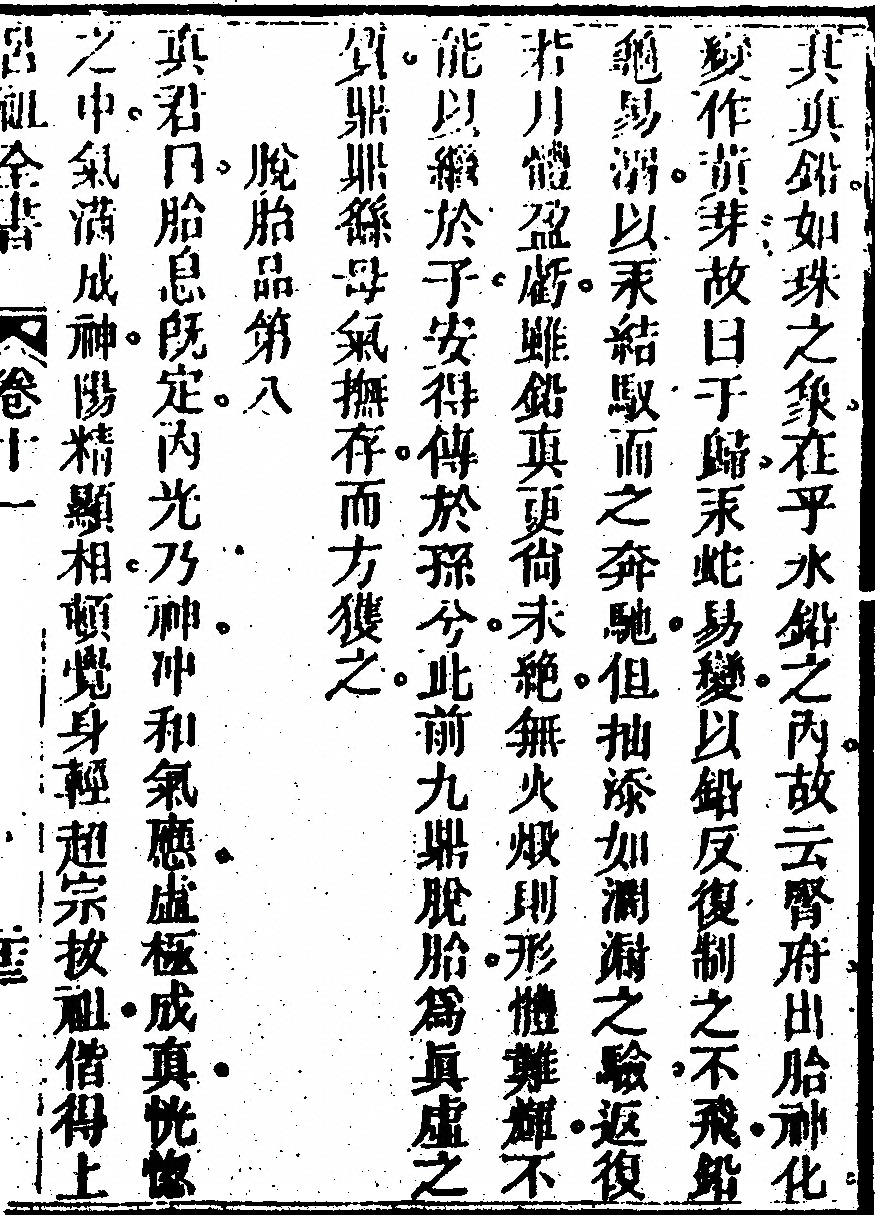 其真鉛如珠之象在乎水鉛之內故云腎府出胎神化
變作黃芽故曰于歸汞蛇易變以鉛反復制之不飛鉛
龜易溺以汞結馭而之奔馳但抽添如漏之驗返復
若月體盈虧雖鉛真更尙未絶無火煅則形體難輝不
能以繼於子安得傳於孫兮此前九鼎脫胎爲眞虛之
質鼎鼎繇母氣撫存而方獲之
脫胎品第八
真君曰胎息旣定內光乃神冲和氣應虛極成真恍惚
之中氣滿成神陽精顯相頓覺身輕超宗拔祖偕得上
呂祖全書 卷十一